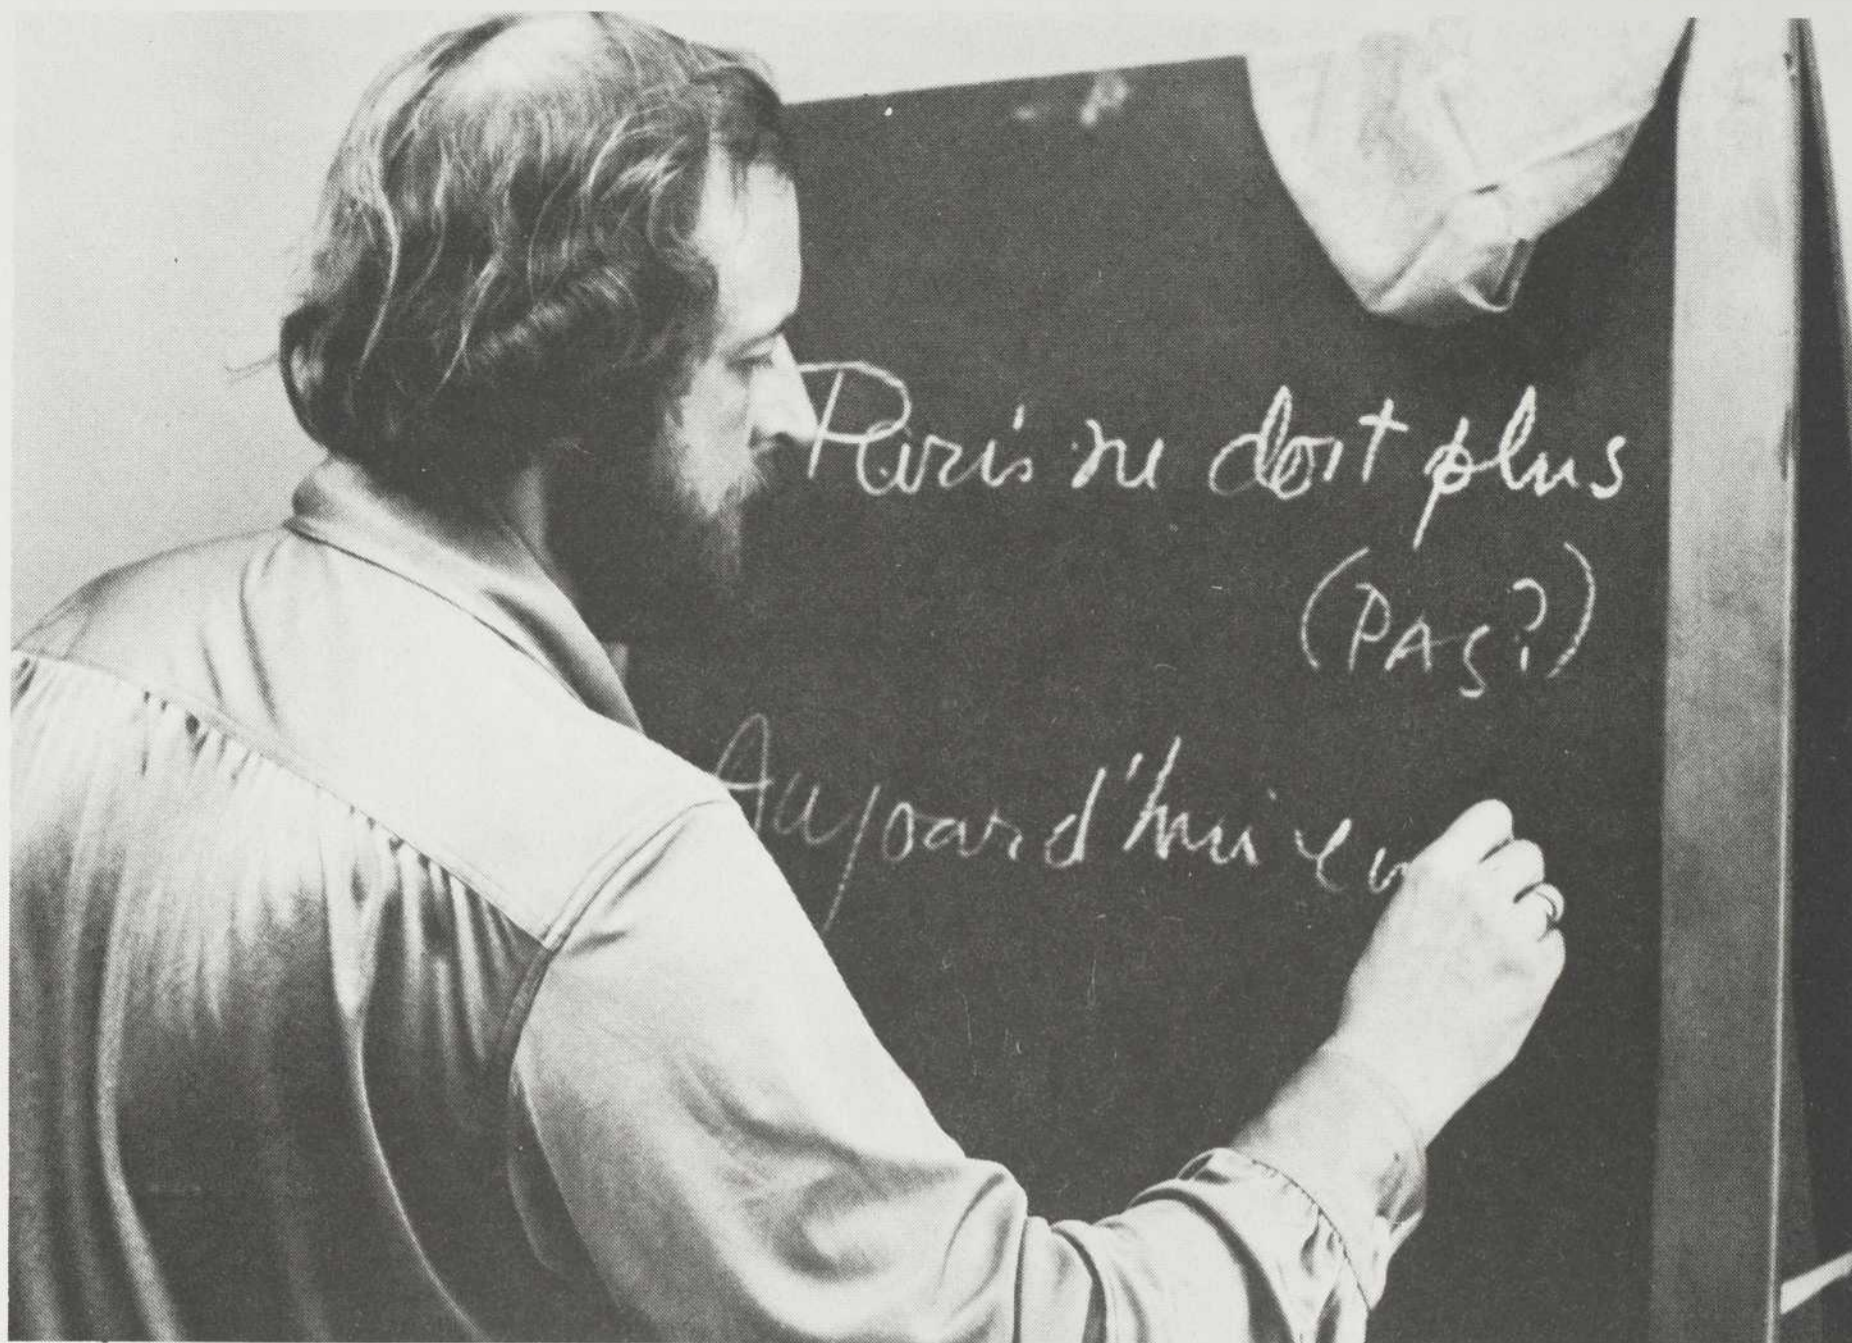 Paris ne doit plus
(PAS?)
Aujourd'hui